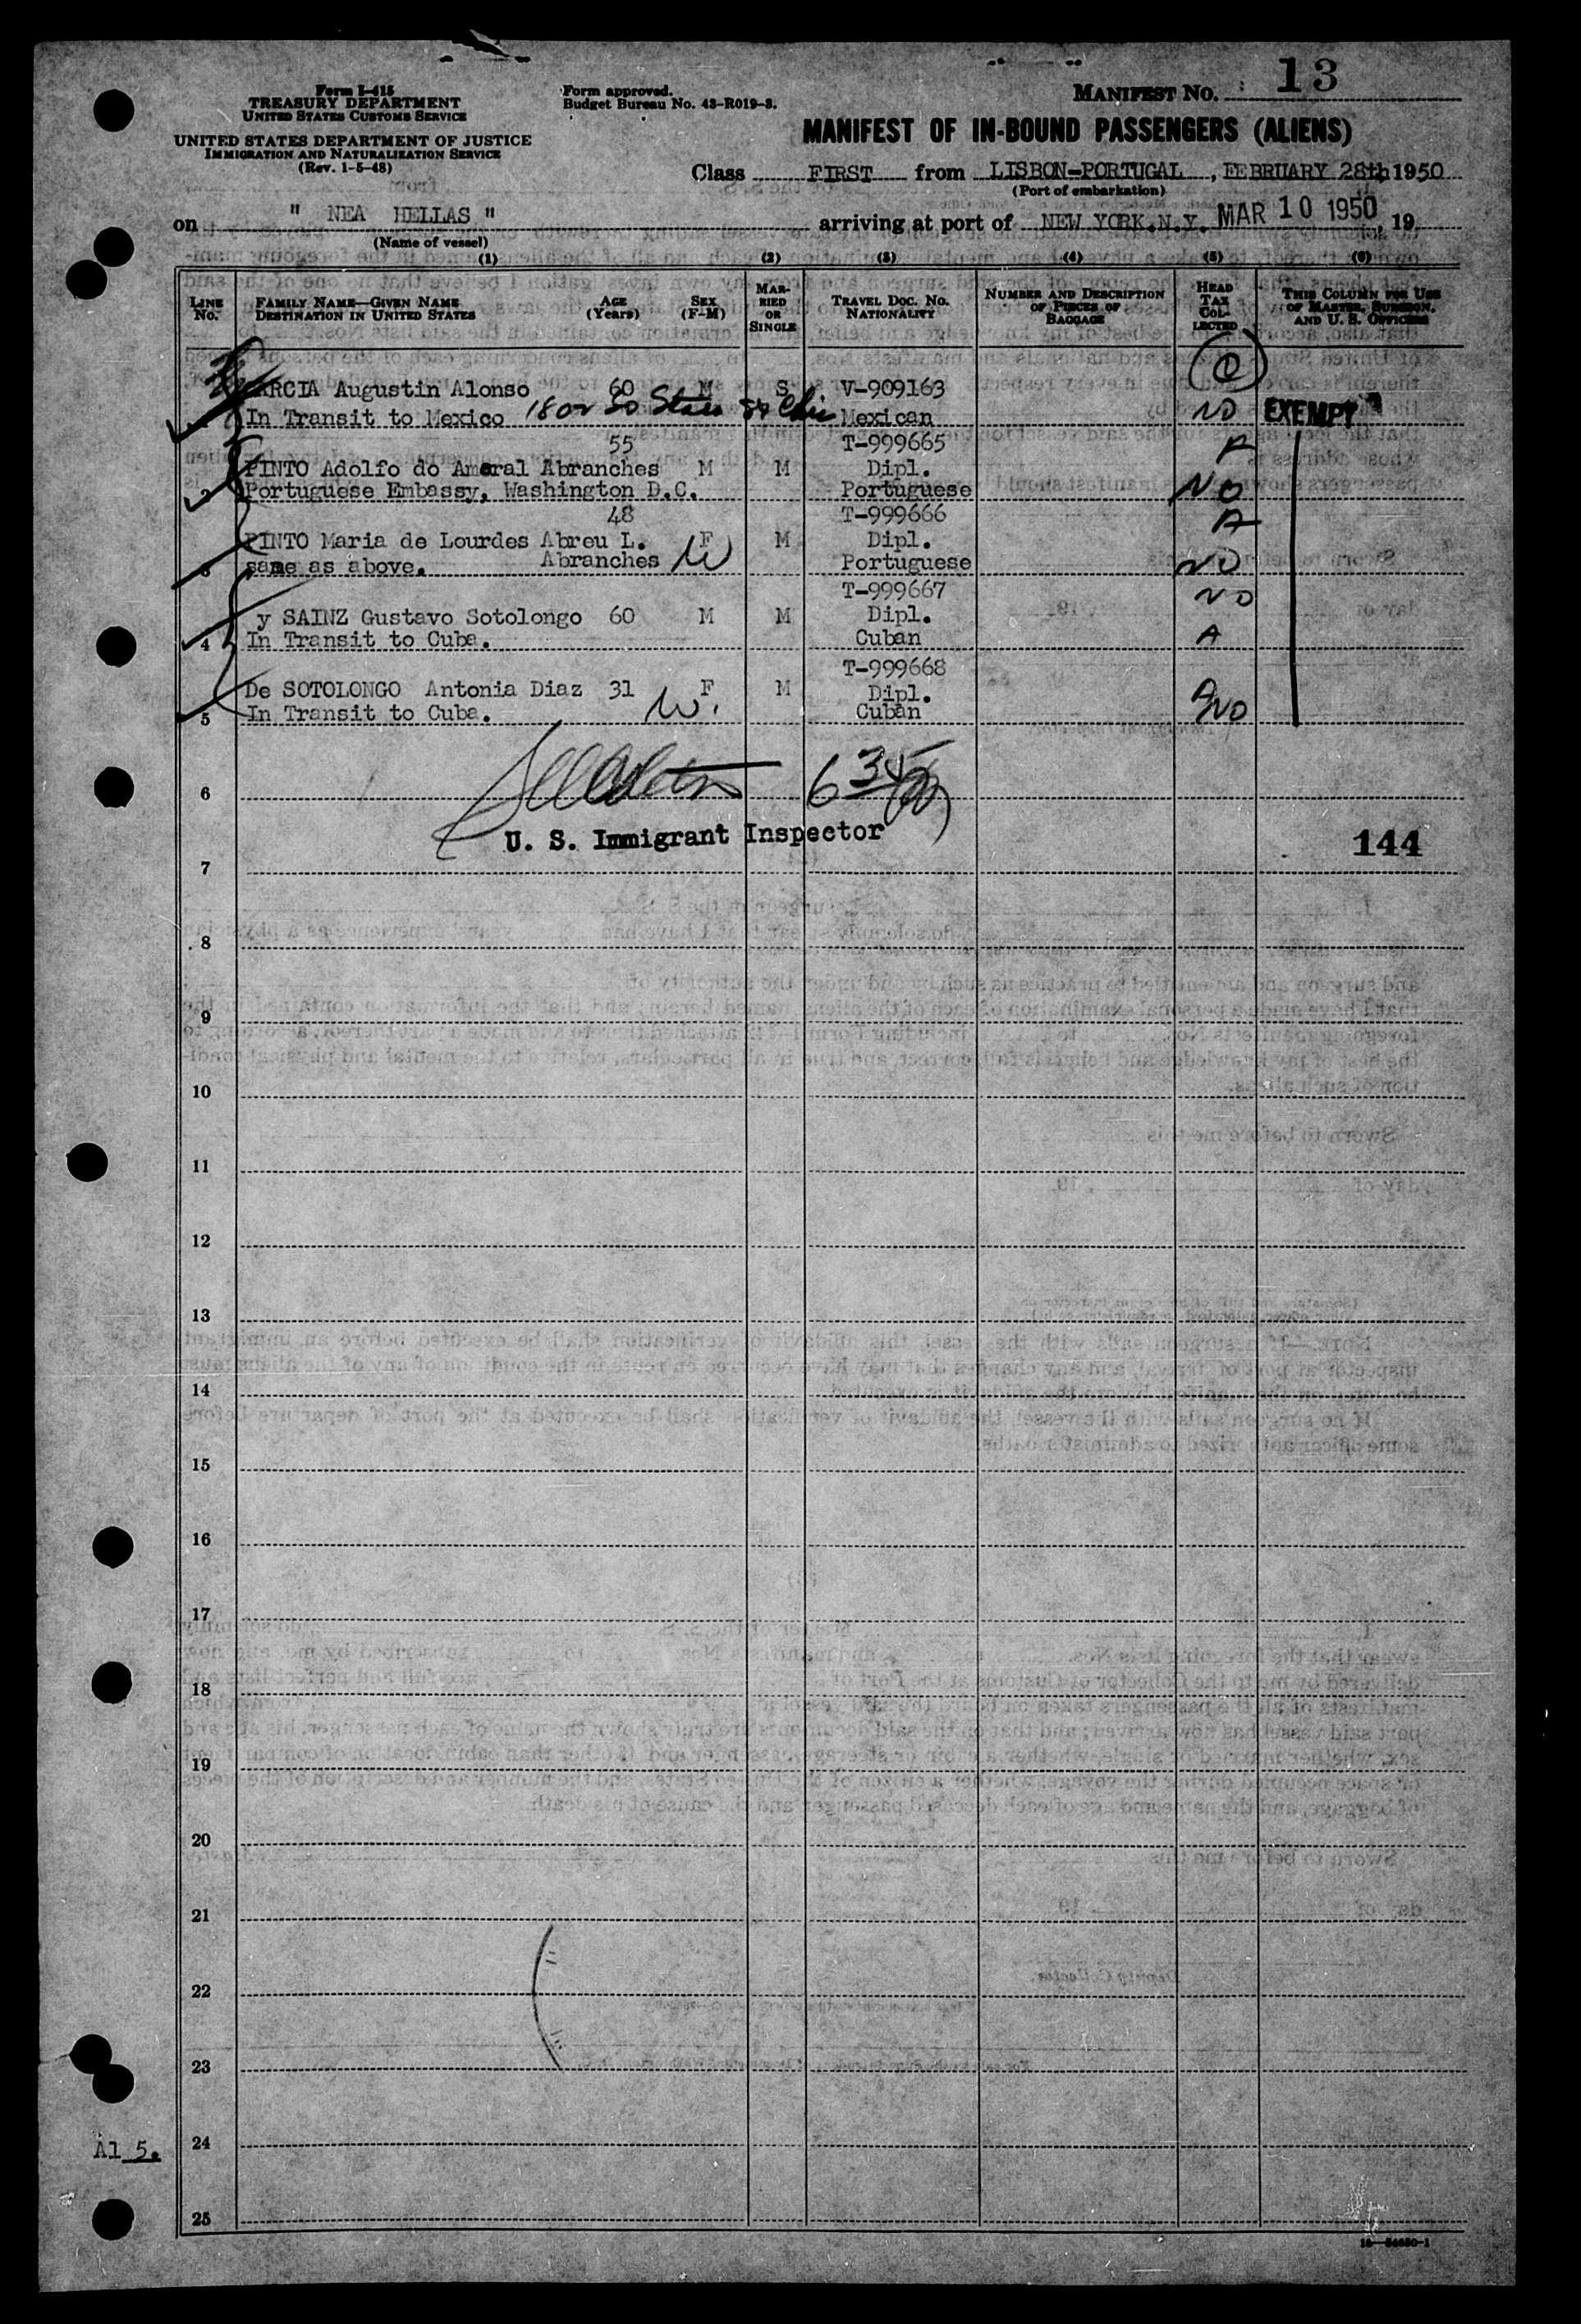 Form I-415
TREASURY DEPARTMENT
UNITED STATES CUSTOMS SERVICE
UNITED STATES DEPARTMENT OF JUSTICE
IMMIGRATION AND NATURALIZATION SERVICE
(Rev. 1-5-48)
Form approved.
Budget Bureau No. 43-R019-3.
MANIFEST NO. 13
MANIFEST OF IN-BOUND PASSENGERS (ALIENS)
Class FIRST from LISBON-PORTUGAL, FEBRUARY 28th 1950
(Port of embarkation)
on " NEA HELLAS " arriving at port of NEW YORK.N.Y. MAR 10 1950, 19
(Name of vessel)
(1) (2) (3) (4) (5) (6)
LINE NO. FAMILY NAME—GIVEN NAME DESTINATION IN UNITED STATES AGE (Years) SEX (F-M) MARRIED OR SINGLE TRAVEL DOC. NO. NATIONALITY NUMBER AND DESCRIPTION OF PIECES OF BAGGAGE HEAD TAX COLLECTED THIS COLUMN FOR USE OF MASTER, SURGEON, AND U. S. OFFICERS
GARCIA Augustin Alonso 60 M S V-909163
In Transit to Mexico 1802 So State St Chi Mexican NO EXEMPT
55 T-999665 A
PINTO Adolfo do Amaral Abranches M M Dipl.
2 Portuguese Embassy, Washington D.C. Portuguese NO
48 T-999666 A
PINTO Maria de Lourdes Abreu L. F W M Dipl.
3 same as above. Abranches Portuguese NO
T-999667 NO
y SAINZ Gustavo Sotolongo 60 M M Dipl.
4 In Transit to Cuba. Cuban A
T-999668
De SOTOLONGO Antonia Diaz 31 F M Dipl. A
5 In Transit to Cuba. W. Cuban NO
6
U. S. Immigrant Inspector
144
7
8
9
10
11
12
13
14
15
16
17
18
19
20
21
22
23
Al 5.
24
25
16—54650-1